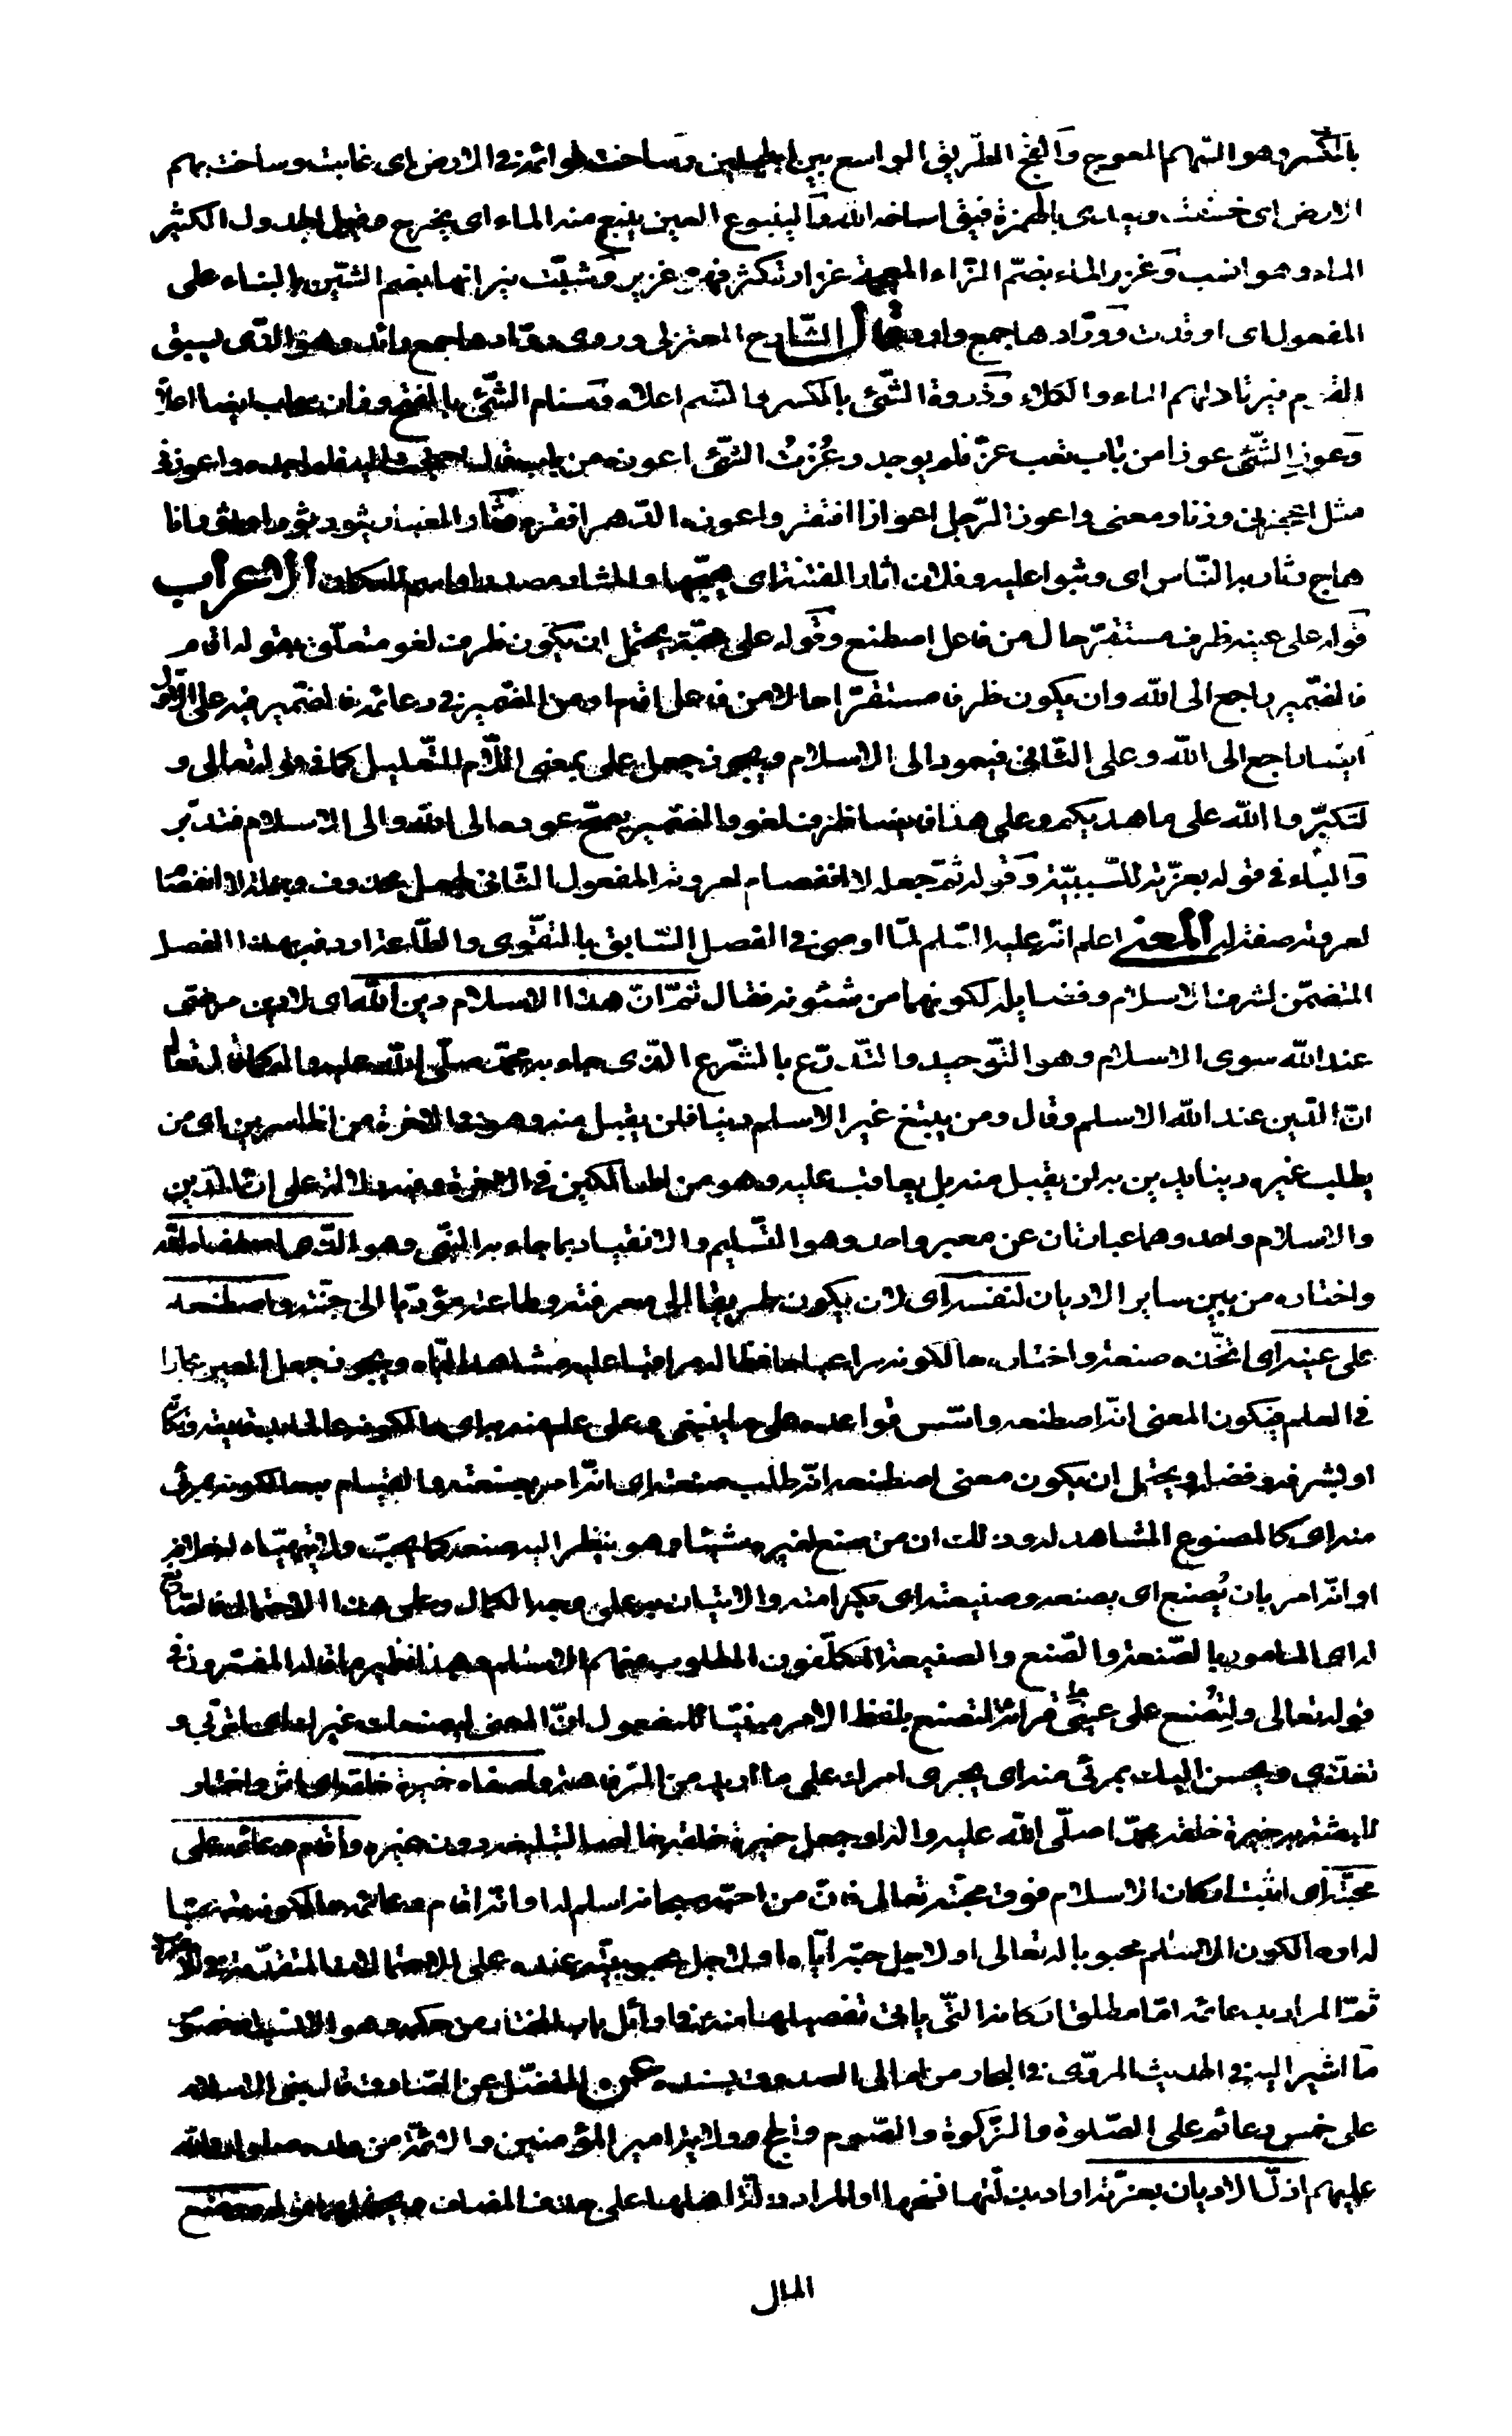 بالكسر وهو السّهم المعوج والفجّ الطّريق الواسع بين الجبلين وساخت قوائمه في الارض اى غابت وساخت بهم
الارض اى خسفت ويعدى بالهمزة فيق اساخه الله والينبوع العين ينبع منه الماء اى يخرج وقيل الجدول الكثير
الماء وهو انسب وغزر الماء بضمّ الزّاء المعجمة غزارة كثر فهو غزير وشبّت نيرانها بضم الشّين بالبناء على
المفعول اى اوقدت وورّادها جمع وارد قال الشّارح المعتزلي وروى روّادها جمع رائد وهو الّذى يسبق
القوم فيرتاد لهم الماء والكلاء وذروة الشّئ بالكسر والضّم اعلاه وسنام الشّئ بالفتح وزان سحاب ايضا اعلاه
وعوز الشّئ عوزا من باب تعب عزّ فلم يوجد وعُزتُ الشّئ اعوزه من باب قال احتجت اليه فلم اجده واعوزنى
مثل اعجزنى وزنا ومعنى واعوز الرّجل اعوازا افتقر واعوزه الدّهر افقره وثار الغبار يثور ثورا وثورانا
هاج وثار به النّاس اى وثبوا عليه وفلان اثار الفتنة اى هيّجها والمثار مصدر او اسم للمكان الاعراب
قوله على عينه ظرف مستقرّ حال من فاعل اصطنع وقوله على محبّته يحتمل ان يكون ظرف لغو متعلّق بقوله اقام
فالضّمير راجع الى الله وان يكون ظرفا مستقرّا حالا من فاعل اقام او من الضّمير في دعائمه فالضّمير فيه على الاوّل
ايضا راجع الى الله وعلى الثّاني فيعود الى الاسلام ويجوز جعل على بمعنى اللّام للتّعليل كما في قوله تعالى و
لتكبّروا الله على ما هديكم وعلى هذا فايضا ظرف لغو والضّمير يصحّ عوده الى الله والى الاسلام فتدبّر
والباء في قوله بعزّته للسّببيّة وقوله ثمّ جعله لا انفصام لعروته المفعول الثّاني لجعل محذوف وجملة لا انفصام
لعروته صفة له المعنى اعلم انّه عليه السّلم لمّا اوصى في الفصل السّابق بالتقوى والطّاعة اردفه بهذا الفصل
المتضمّن لشرف الاسلام وفضايله لكونهما من شئونه فقال ثمّ انّ هذا الاسلام دين الله اى لا دين مرضى
عند الله سوى الاسلام وهو التّوحيد والتّدرّع بالشّرع الّذى جاء به محمّد صلّى الله عليه واله كما قال تعالى
انّ الدّين عند الله الاسلم وقال ومن يبتغ غير الاسلم دينا فلن يقبل منه وهو في الاخرة من الخاسرين اى من
يطلب غيره دينا يدين به لن يقبل منه بل يعاقب عليه وهو من الهالكين في الاخرة وفيه دلالة على انّ الدّين
والاسلام واحد وهما عبارتان عن معبر واحد وهو التّسليم والانقياد بما جاء به النّبى وهو الّذى اصطفاه الله
واختاره من بين ساير الاديان لنفسه اى لان يكون طريقا الى معرفته وطاعته مؤدّيا الى جنّته واصطنعه
على عينه اى اتّخذه صنعة واختاره حالكونه مراعيا حافظا له مراقبا عليه مشاهدا ايّاه ويجوز جعل العين مجازا
في العلم فيكون المعنى انّه اصطنعه واسّس قواعده على ما ينبغى وعلى علم منه به اى حالكونه عالما
او بشرفه وفضله ويحتمل ان يكون معنى اصطنعه انّه طلب صنعته اى انّه امر بصنعته والقيام بها لكونه بمرئى
منه اى كالمصنوع المشاهد له وذلك ان من صنع لغيره شيئا وهو ينظر اليه صنعه كما يحبّ ولا يتهيّاء له خلافه
او انّه امر بان يُصنع اى بصنعه وصنيعته اى بكرامته والاتيان به على وجه الكمال وعلى هذا الاحتمال فالصّانع
له اى المامور بالصّنعة والصّنع والصنيعة المكلّفون المطلوب منهم الاسلم وهذا نظير ما قاله المفسّرون في
قوله تعالى ولِتُصنع على عينى على قرائة لتصنع بلفظ الامر مبنيّا للمفعول انّ المعنى ليصنعك غيرك اى لتربّى و
تغذّى ويحسن اليك بمرئى منى اى يجرى امرك على ما اريد من الرّفاهة واصفاه خيرة خلقه اى اثر واختار
للبعثة به خيرة خلقه محمّدا صلّى الله عليه واله او جعل خيرة خلقه خالصا لتبليغه دون غيره واقام دعائمه على
محبّته اى اثبت اركان الاسلام فوق محبّته تعالى فانّ من احبّه سبحانه اسلم له او انّه اقام دعائمه حالكونه تعالى محبّا
له او حالكون الاسلم محبوبا له تعالى او لاجل حبّه ايّاه او لاجل محبوبيّته عنده على الاحتمالات المتقدّمة في الاعراب
ثمّ المراد بدعائمه امّا مطلق اركانه الّتى ياتى تفصيلها منه في اوائل باب المختار من حكمه وهو الانسب او خصوص
ما اشير اليه في الحديث المروّى في البحار من امالى الصدوق بسنده عن المفضّل عن الصّادق قال بنى الاسلام
على خمس دعائم على الصّلوة والزّكوة والصّوم والحج وولاية امير المؤمنين والائمّة من ولده صلوات الله
عليهم اذلّ الاديان بعزّته اراد بذلّتها نسخها او المراد ذلّة اهلها على حذف المضاف ويحتملهما قوله ووضع
الملل